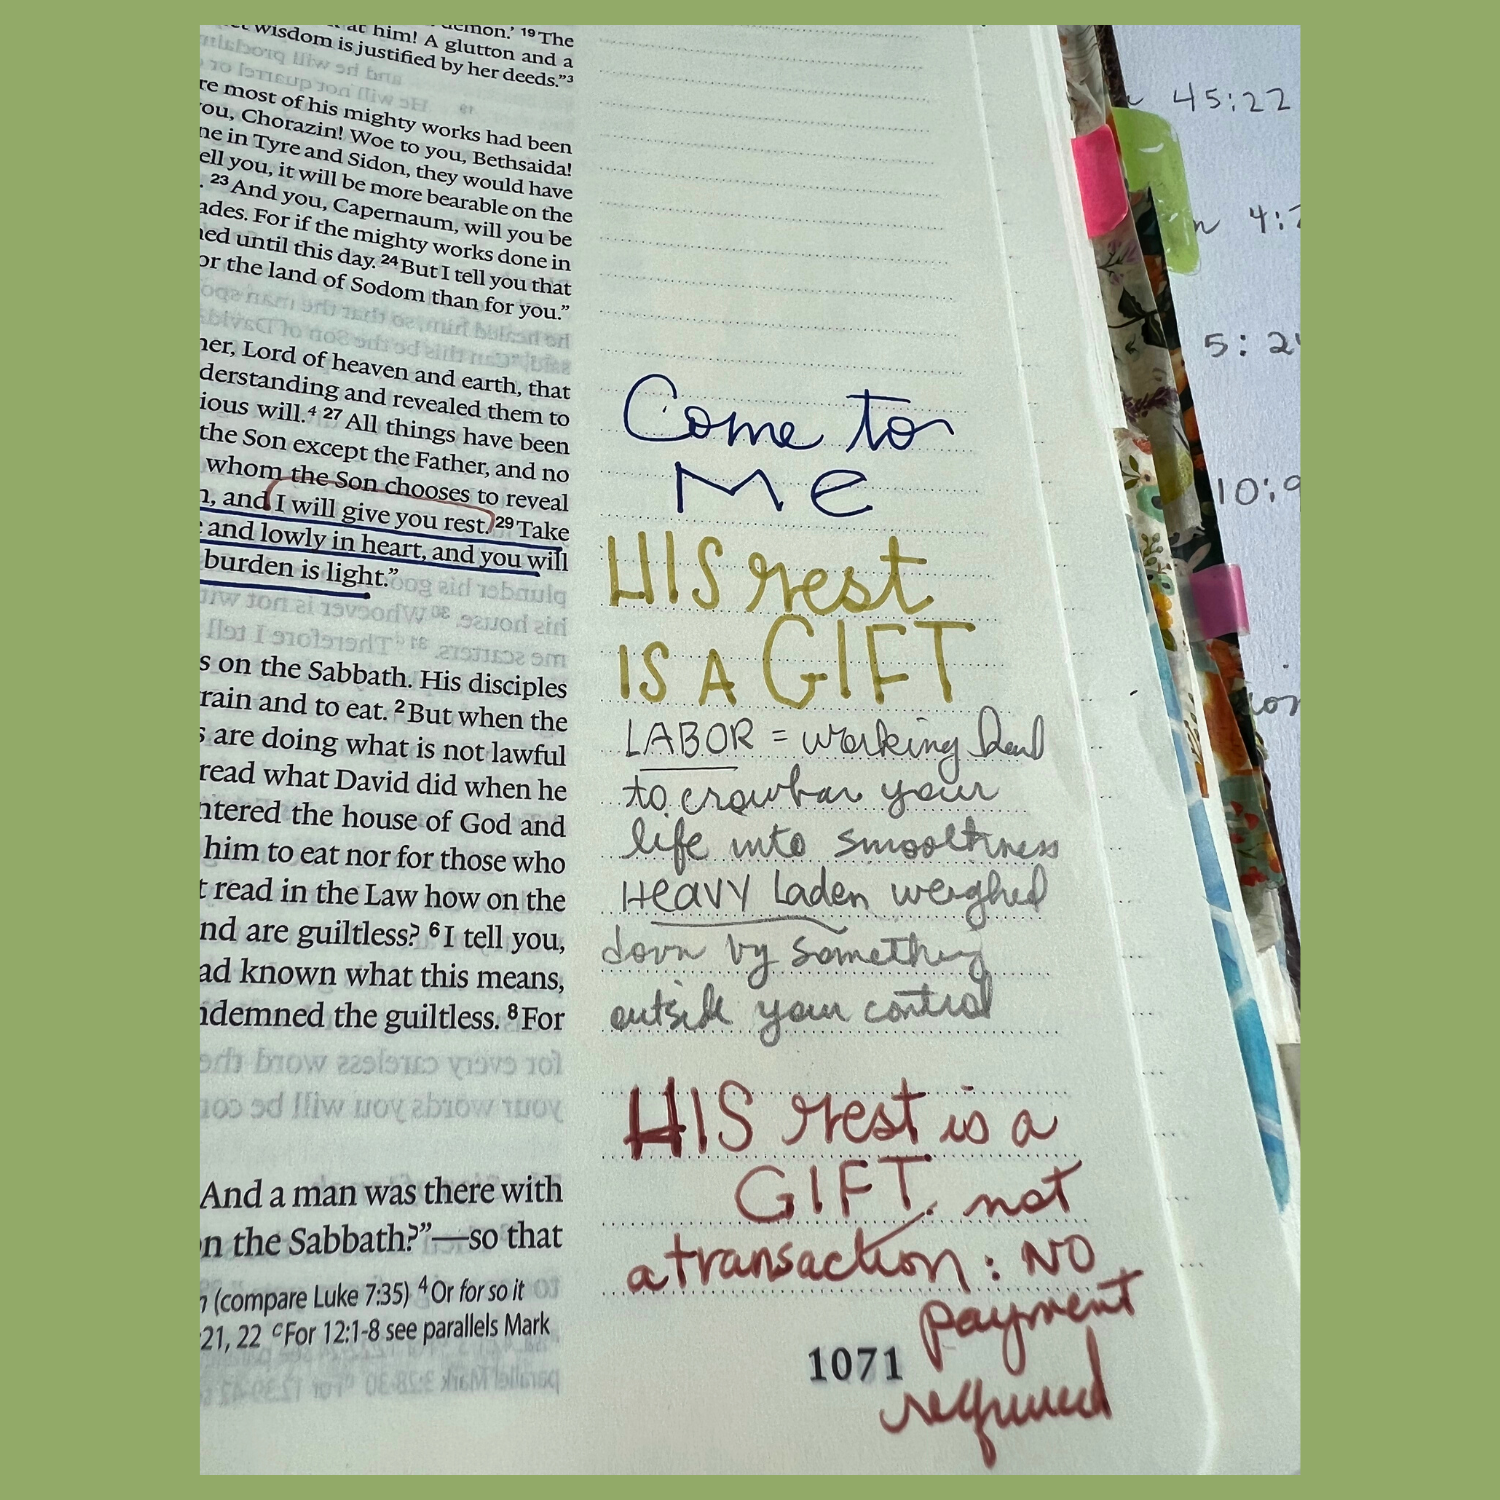 demon.' 19 The
at him! A glutton and a
wisdom is justified by her deeds."3
re most of his mighty works had been
ou, Chorazin! Woe to you, Bethsaida!
ne in Tyre and Sidon, they would have
ell you, it will be more bearable on the
. 23 And you, Capernaum, will you be
ades. For if the mighty works done in
ned until this day. 24 But I tell you that
or the land of Sodom than for you."
her, Lord of heaven and earth, that
derstanding and revealed them to
ious will.4 27 All things have been
the Son except the Father, and no
whom the Son chooses to reveal
n, and I will give you rest. 29 Take
and lowly in heart, and you will
burden is light."
s on the Sabbath. His disciples
rain and to eat. 2 But when the
s are doing what is not lawful
read what David did when he
ntered the house of God and
him to eat nor for those who
t read in the Law how on the
nd are guiltless? 6 I tell you,
ad known what this means,
ndemned the guiltless. 8 For
And a man was there with
on the Sabbath?"—so that
(compare Luke 7:35) 4 Or for so it
21, 22 c For 12:1-8 see parallels Mark
Come to
Me
HIS rest
IS A GIFT
LABOR = working hard
to crowbar your
life into smoothness
Heavy Laden weighed
down by something
outside your control
HIS rest is a
GIFT. not
a transaction: NO
payment
required
1071
45:22
4:
5:2
10:9